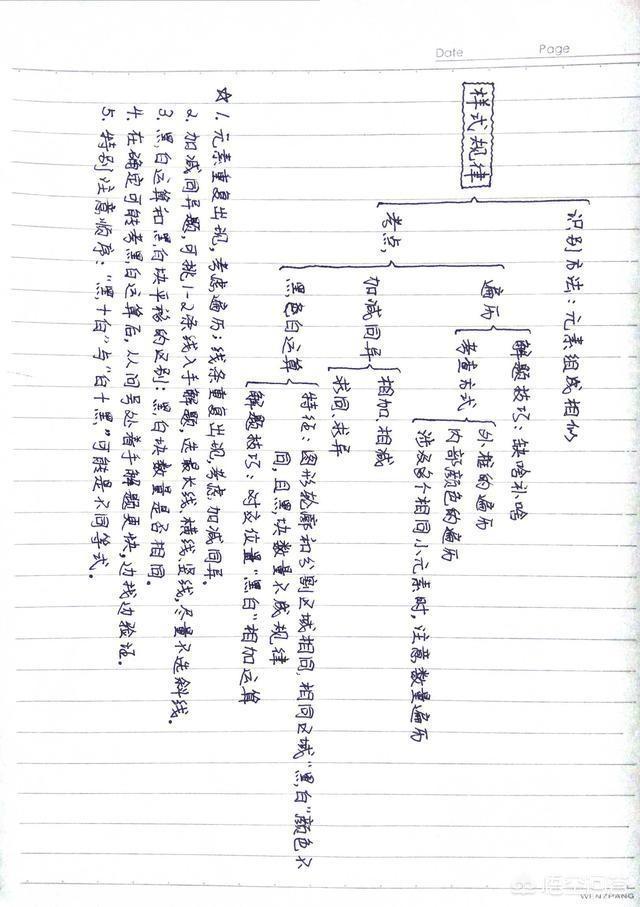 Date
Page
样式规律
识别方法：元素组成相似
考点
遍历
解题技巧：缺啥补啥
考查方式
外框的遍历
内部颜色的遍历
涉及多个相同小元素时，注意数量遍历
加减同异
相加、相减
求同、求异
黑色白运算
特征：图形轮廓和分割区域相同，相同区域“黑，白”颜色不
同，且黑块数量不成规律
解题技巧：对应位置“黑白”相加运算
☆ 1. 元素重复出现，考虑遍历；线条重复出现，考虑加减同异。
2. 加减同异题，可挑1-2条线入手解题，选最长线、横线、竖线，尽量不选斜线。
3. 黑，白运算和黑，白块平移的区别：黑，白块数量是否相同。
4. 在确定可能考黑，白运算后，从问号处着手解题更快，边找边验证。
5. 特别注意顺序：“黑，+白”与“白+黑，”可能是不同等式。
悟空问答
WENZPANG